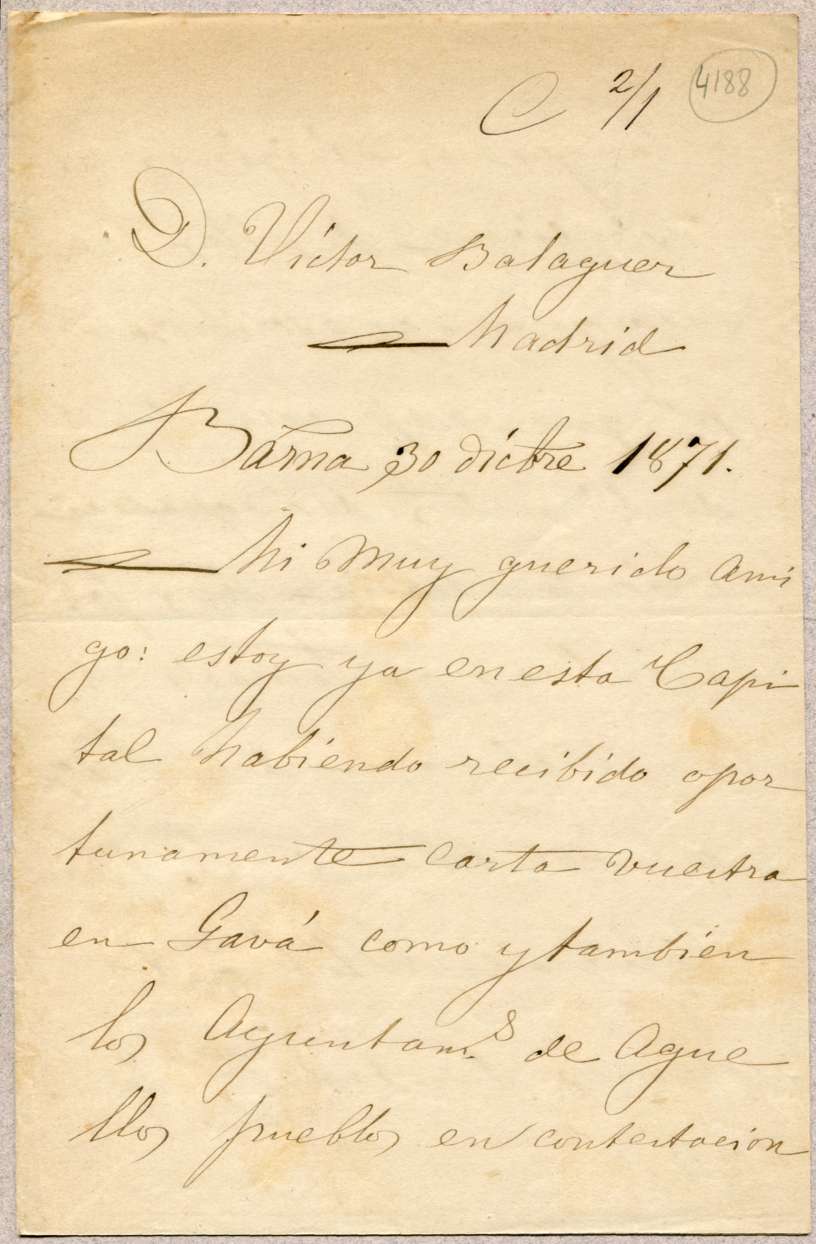 C 2/1 4188
D. Víctor Balaguer
Madrid
Barna 30 dicbre 1871.
Mi muy querido ami
go: estoy ya en esta Capi
tal habiendo recibido opor
tunamente carta vuestra
en Gavá como y tambien
los Ayuntam.s de Aque
llos pueblos en contestacion